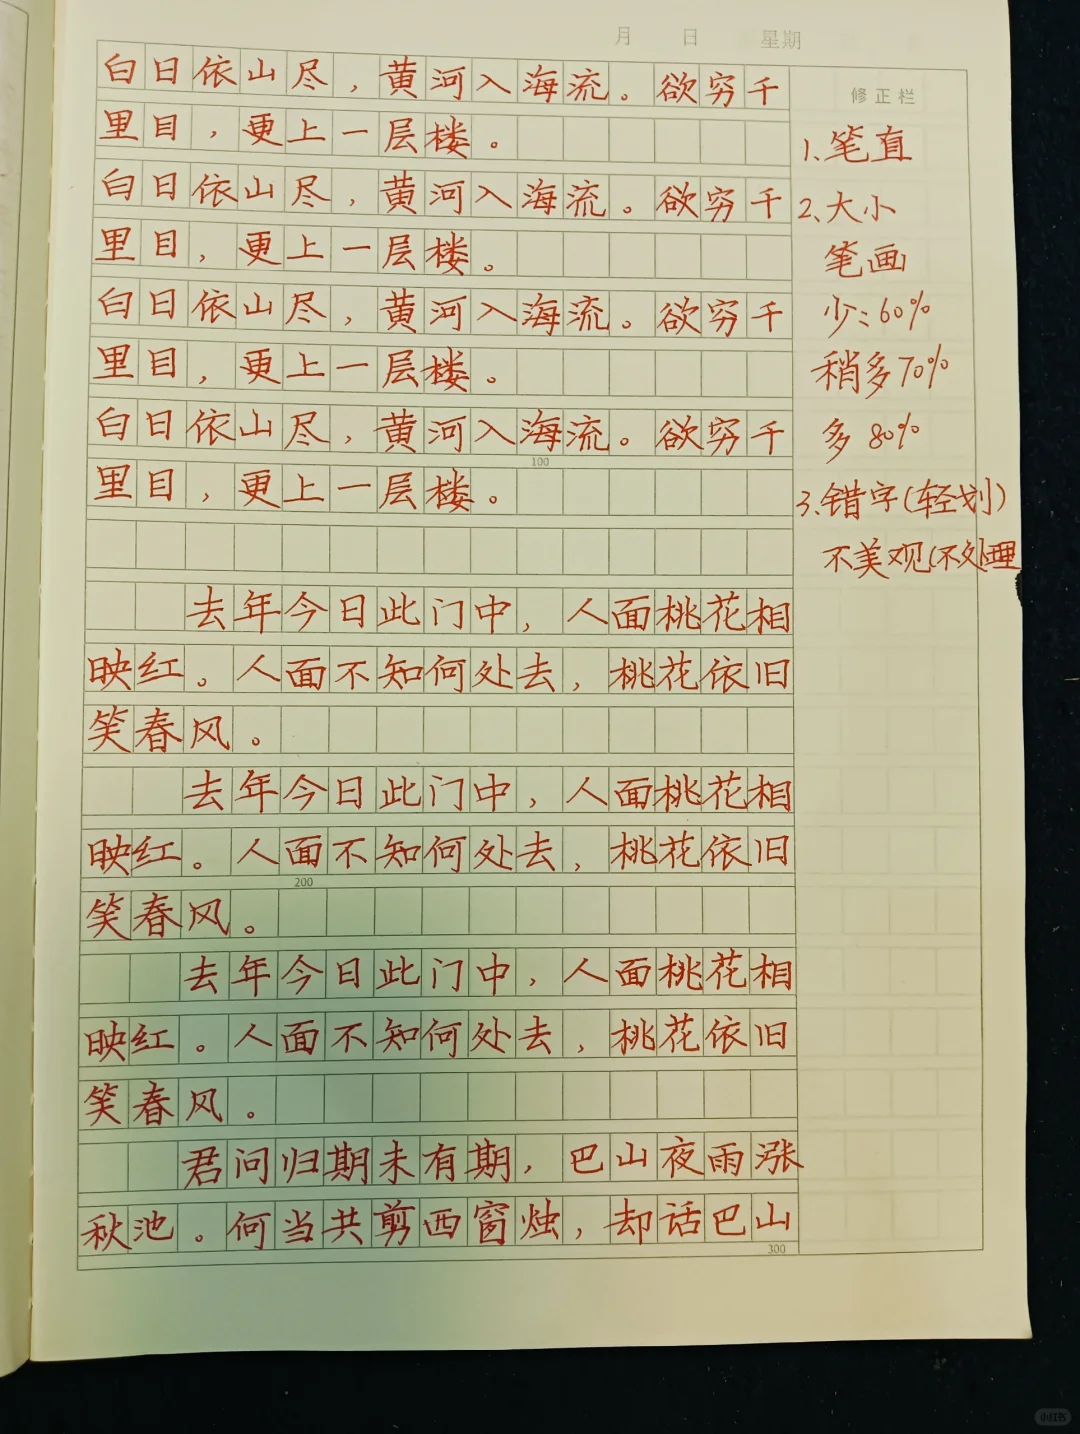 月 日 星期
白日依山尽，黄河入海流。欲穷千
里目，更上一层楼。
白日依山尽，黄河入海流。欲穷千
里目，更上一层楼。
白日依山尽，黄河入海流。欲穷千
里目，更上一层楼。
白日依山尽，黄河入海流。欲穷千
100
里目，更上一层楼。
去年今日此门中，人面桃花相
映红。人面不知何处去，桃花依旧
笑春风。
去年今日此门中，人面桃花相
映红。人面不知何处去，桃花依旧
200
笑春风。
去年今日此门中，人面桃花相
映红。人面不知何处去，桃花依旧
笑春风。
君问归期未有期，巴山夜雨涨
秋池。何当共剪西窗烛，却话巴山
300
修正栏
1、笔直
2、大小
笔画
少：60%
稍多70%
多 80%
3、错字（轻划）
不美观（不处理
小红书